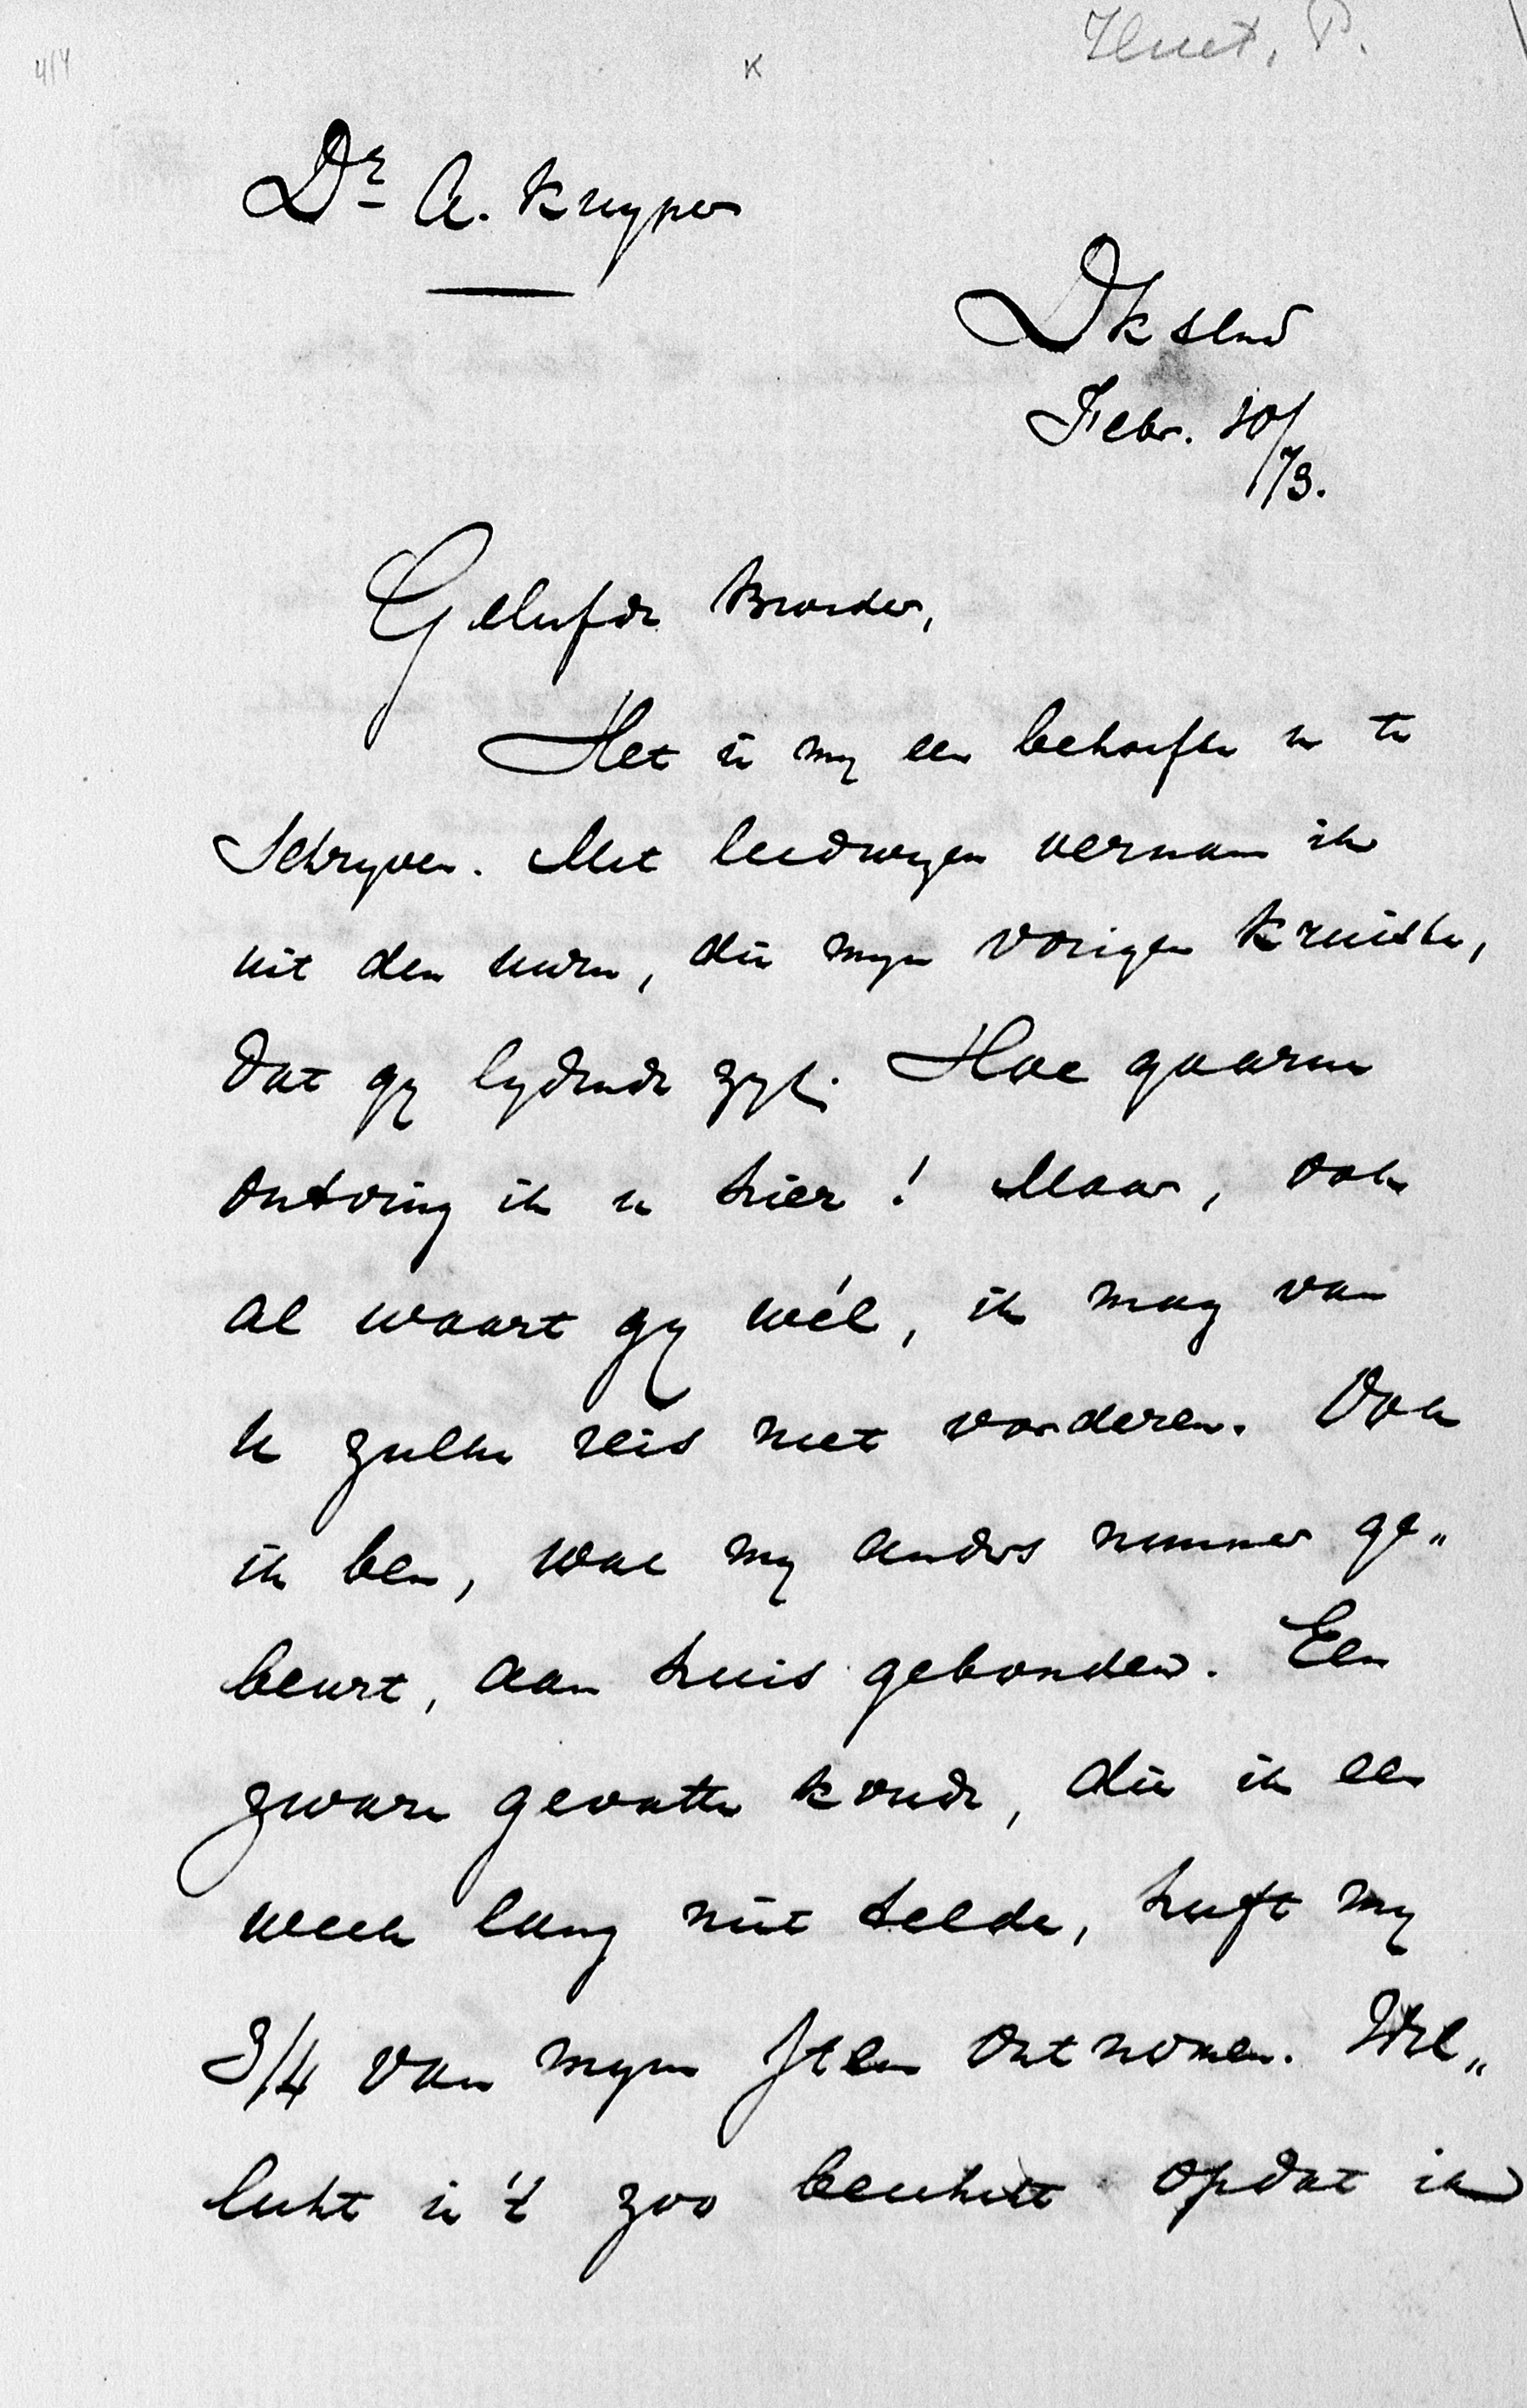 414
K
Huet, P.
Dr A. Kuyper
Dksland
Febr. 10/73.
Geliefde Broeder,
Het is my een behoefte u te
schryven. Met leedwezen vernam ik
uit den uwen, die myn vorigen kruiste,
dat gy lydende zyt. Hoe gaarne
ontving ik u hier! Maar, ook
al waart gy wél, ik mag van
u zulke reis niet vorderen. Ook
ik ben, wat my anders nimmer ge„
beurt, aan huis gebonden. Een
zware gevatte koude, die ik een
week lang niet telde, heeft my
3/4 van myn stem ontnomen. Wel„
licht is 't zoo beschikt opdat ik